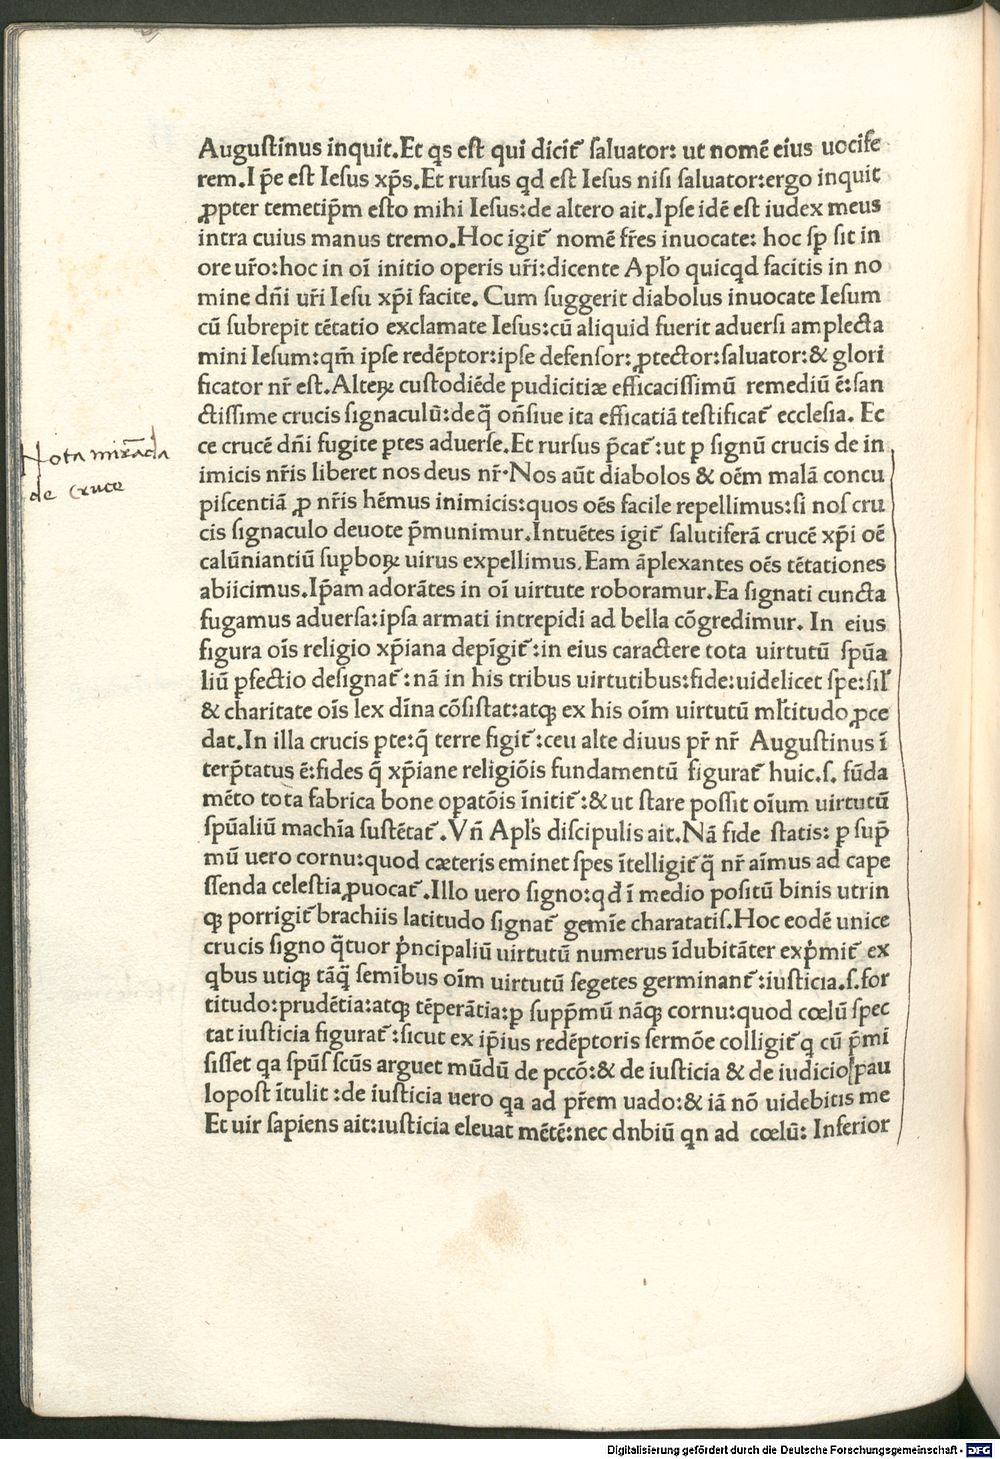 Auguſtinus inquit.Et q̃s eſt qui dicit᷑ ſaluator: ut nomē eius uociſe
rem.I p̄e eſt Ieſus xp̄s.Et rurſus qd eſt Ieſus niſi ſaluator:ergo inquit
ꝓpter temetip̄m eſto mihi Ieſus:de altero ait.Ipſe idē eſt iudex meus
intra cuius manus tremo.Hoc igit᷑ nomē fr̄es inuocate: hoc ſꝑ ſit in
ore ur̄o:hoc in oī initio operis ur̄i:dicente Apl'o quicqd facitis in no
mine dn̄i ur̄i Ieſu xp̄i facite. Cum ſuggerit diabolus inuocate Ieſum
cū ſubrepit tētatio exclamate Ieſus:cū aliquid fuerit aduerſi amplecta
mini Ieſum:qm̄ ipſe redēptor:ipſe defenſor:ꝓtector:ſaluator:& glori
ficator nr̄ eſt.Alteꝝ cuſtodiēde pudicitiæ efficaciſſimū remediū ē:ſan
ctiſſime crucis ſignaculū:de q̄ on̄ſiue ita efficatiā teſtificat᷑ eccleſia. Ec
ce crucē dn̄i fugite ꝑtes aduerſe.Et rurſus p̄cat᷑:ut ꝑ ſignū crucis de in
imicis nr̄is liberet nos deus nr̄.Nos aūt diabolos & oēm malā concu
piſcentiā ꝓ nr̄is hēmus inimicis:quos oēs facile repellimus:ſi noſ cru
cis ſignaculo deuote p̄munimur.Intuētes igit᷑ ſalutiferā crucē xp̄i oē
calūniantiū ſuꝑboꝝ uirus expellimus.Eam āplexantes oēs tētationes
abiicimus.Ip̄am adorātes in oī uirtute roboramur.Ea ſignati cuncta
fugamus aduerſa:ipſa armati intrepidi ad bella cōgredimur. In eius
figura oīs religio xp̄iana depīgit᷑:in eius caractere tota uirtutū ſpūa
liū ꝑfectio deſignat᷑:nā in his tribus uirtutibus:fide:uidelicet ſpe:ſil'
& charitate oīs lex dīna cōſiſtat:atqꝫ ex his oīm uirtutū ml'titudo ꝓce
dat.In illa crucis ꝑte:q̄ terre figit᷑:ceu alte diuus pr̄ nr̄ Auguſtinus ī
terp̄tatus ē:fides q̄ xp̄iane religiōis fundamentū figurat᷑ huic.ſ. fūda
mēto tota fabrica bone oꝑatōis īnitit᷑:& ut ſtare poſſit oīum uirtutū
ſpūaliū machīa ſuſtētat᷑.Vn̄ Apl's diſcipulis ait.Nā fide ſtatis: ꝑ ſup̄
mū uero cornu:quod cæteris eminet ſpes ītelligit᷑ q̄ nr̄ aīmus ad cape
ſſenda celeſtia ꝓuocat᷑.Illo uero ſigno:qd̄ ī medio poſitū binis utrin
qꝫ porrigit᷑ brachiis latitudo ſignat᷑ gemīe charatatiſ.Hoc eodē unice
crucis ſigno q̄tuor p̄ncipaliū uirtutū numerus īdubitāter exp̄mit᷑ ex
qbus utiqꝫ tāq̄ ſemībus oīm uirtutū ſegetes germinant᷑:iuſticia.ſ.for
titudo:prudētia:atqꝫ tēperātia:ꝑ ſupp̄mū nāqꝫ cornu:quod cœlū ſpec
tat iuſticia figurat᷑:ſicut ex ip̄ius redēptoris ſermōe colligit᷑ q cū p̄mi
ſiſſet qa ſpūſ ſcūs arguet mūdū de pccō:& de iuſticia & de iudicio pau
lopoſt ītulit:de iuſticia uero qa ad pr̄em uado:& iā nō uidebitis me
Et uir ſapiens ait:iuſticia eleuat mētē:nec dnbiū qn ad cœlū: Inferior
Nota mirāda
de cruce
Digitalisierung gefördert durch die Deutsche Forschungsgemeinschaft - DFG